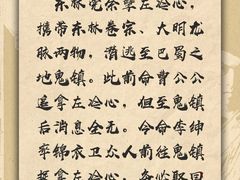 东林党余孽左冷心，
携带东林卷宗、大明龙
脉两物，潜逃至巴蜀之
地鬼镇。此前命曹公公
追拿左冷心，但至鬼镇
后消息全无。今命李绅
率锦衣卫众人前往鬼镇
捉拿左冷心，务必取回